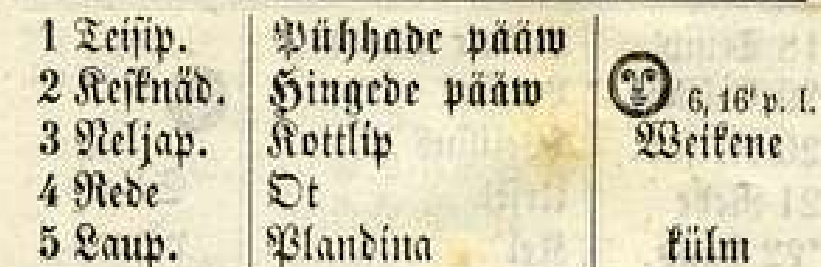 1 Teisip. Pühhade pääw
2 Kesknäd. Hingede pääw 6, 16' p. l.
3 Neljap. Kottlip Weikene
4 Rede Ot
5 Laup. Plandina külm